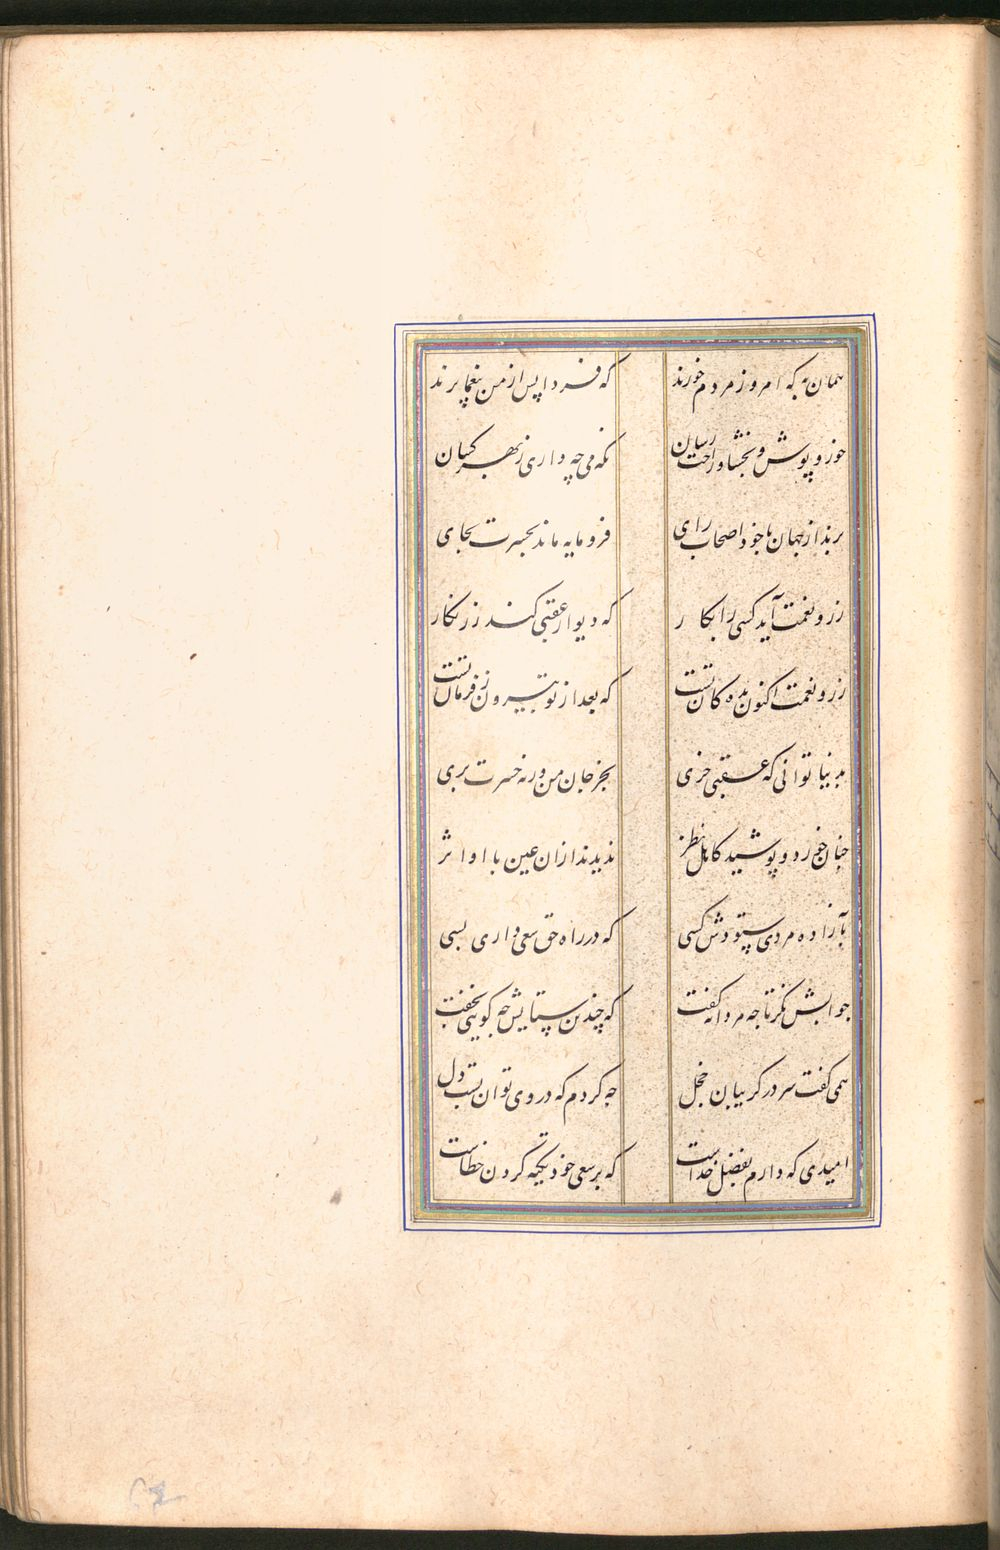 همان به که امروز مردم خورند که فردا پس از من بیغما برند
خور و پوش و بخشا و راحت رسان نگه می چه داری ز بهر کسان
برند از جهان با خود اصحاب رای فرومایه ماند بحسرت بجای
زر و نعمت آید کسی را بکار که دیوار عقبی کند زرنگار
زر و نعمت اکنون بده کان تست که بعد از تو بیرون ز فرمان تست
بدنیا توانی که عقبی خری بخر جان من ورنه حسرت بری
چنان خورد و پوشید کاهل نظر ندیدند ازان عین با او اثر
بآزاده مردی ستودش کسی که در راه حق سعی داری بسی
جوابش نگر تا چه مردانه گفت که چندین ستایش چه گویی بخفت
همی گفت سر در گریبان خجل چه کردم که در وی توان بست دل
امیدی که دارم بفضل خداست که بر سعی خود تکیه کردن خطاست